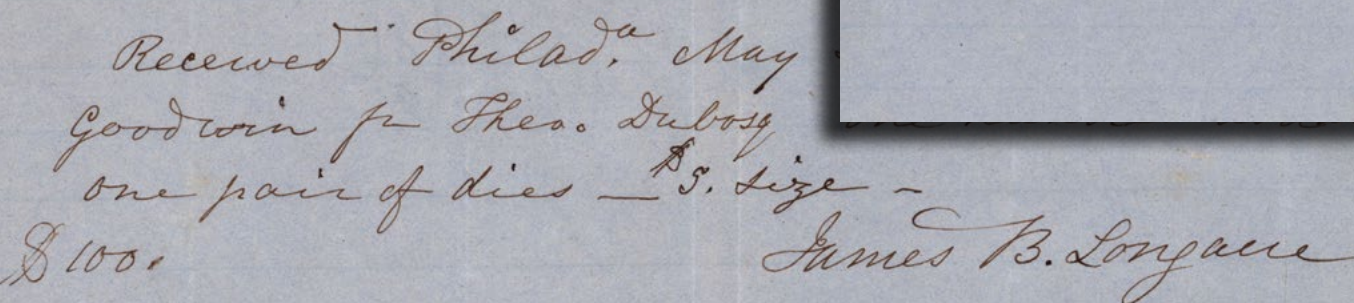 Received Philad.ᵃ May
Goodwin pr Theo. Dubosq
one pair of dies — $5. size -
$100.
James B. Longacre